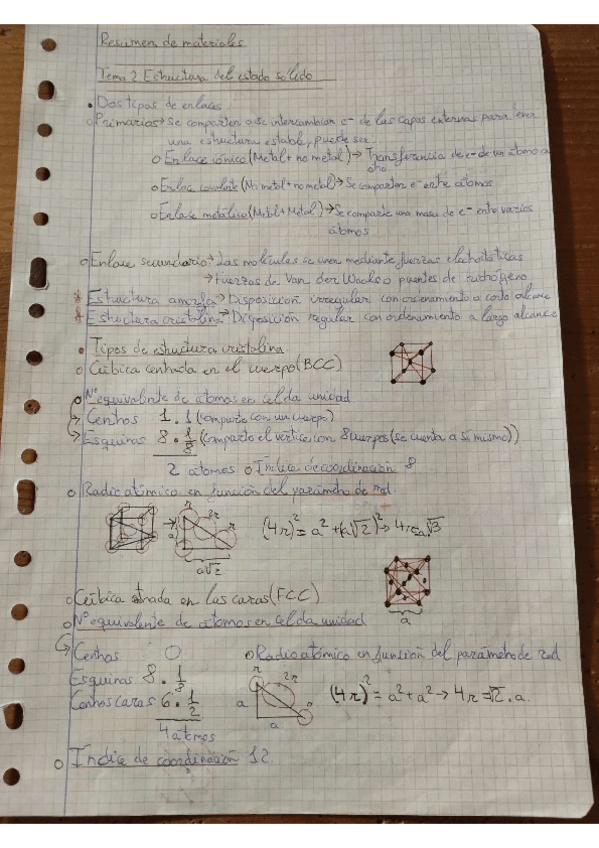 Resumen de materiales
Tema 2 Estructura del estado solido
• Dos tipos de enlaces
o Primarios → Se comparten o se intercambian e- de las capas externas para tener
una estructura estable, puede ser
o Enlace iónico (Metal + no metal) → Transferencia de e- de un átomo a
otro
o Enlace covalente (No metal + no metal) → Se comparten e- entre átomos
o Enlace metálico (Metal + Metal) → Se comparte una masa de e- entre varios
átomos
o Enlace secundario → Las moléculas se unen mediante fuerzas electrostáticas
→ Fuerzas de Van der Waals o puentes de hidrógeno
* Estructura amorfa → Disposición irregular con ordenamiento a corto alcance
* Estructura cristalina → Disposición regular con ordenamiento a largo alcance
• Tipos de estructura cristalina
o Cúbica centrada en el cuerpo (BCC)
o Nº equivalente de atomos en celda unidad
→ Centros 1 · 1 (comparte con un cuerpo)
→ Esquinas 8 · 1/8 (comparte el vertice con 8 cuerpos (se cuenta a si mismo))
2 atomos o Indice de coordinación 8
o Radio atómico en función del parámetro de red
r 2r r a a√2
(4r)² = a² + (a√2)² → 4r = a√3
o Cúbica centrada en las caras (FCC)
a
o Nº equivalente de atomos en celda unidad
→ Centros 0
o Radio atómico en función del parámetro de red
Esquinas 8 · 1/8
Centros caras 6 · 1/2
4 atomos
r 2r a a
(4r)² = a² + a² → 4r = √2 · a.
o Indice de coordinación 12.